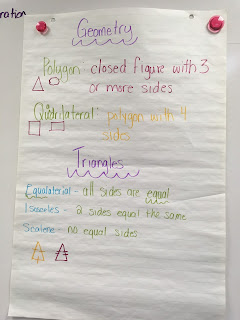 ration
Geometry
Polygon closed figure with 3
or more sides
Quadrilateral: polygon with 4
sides
Triangles
Equalaterial - all sides are equal
Isoceles - 2 sides equal the same
Scalene - no equal sides